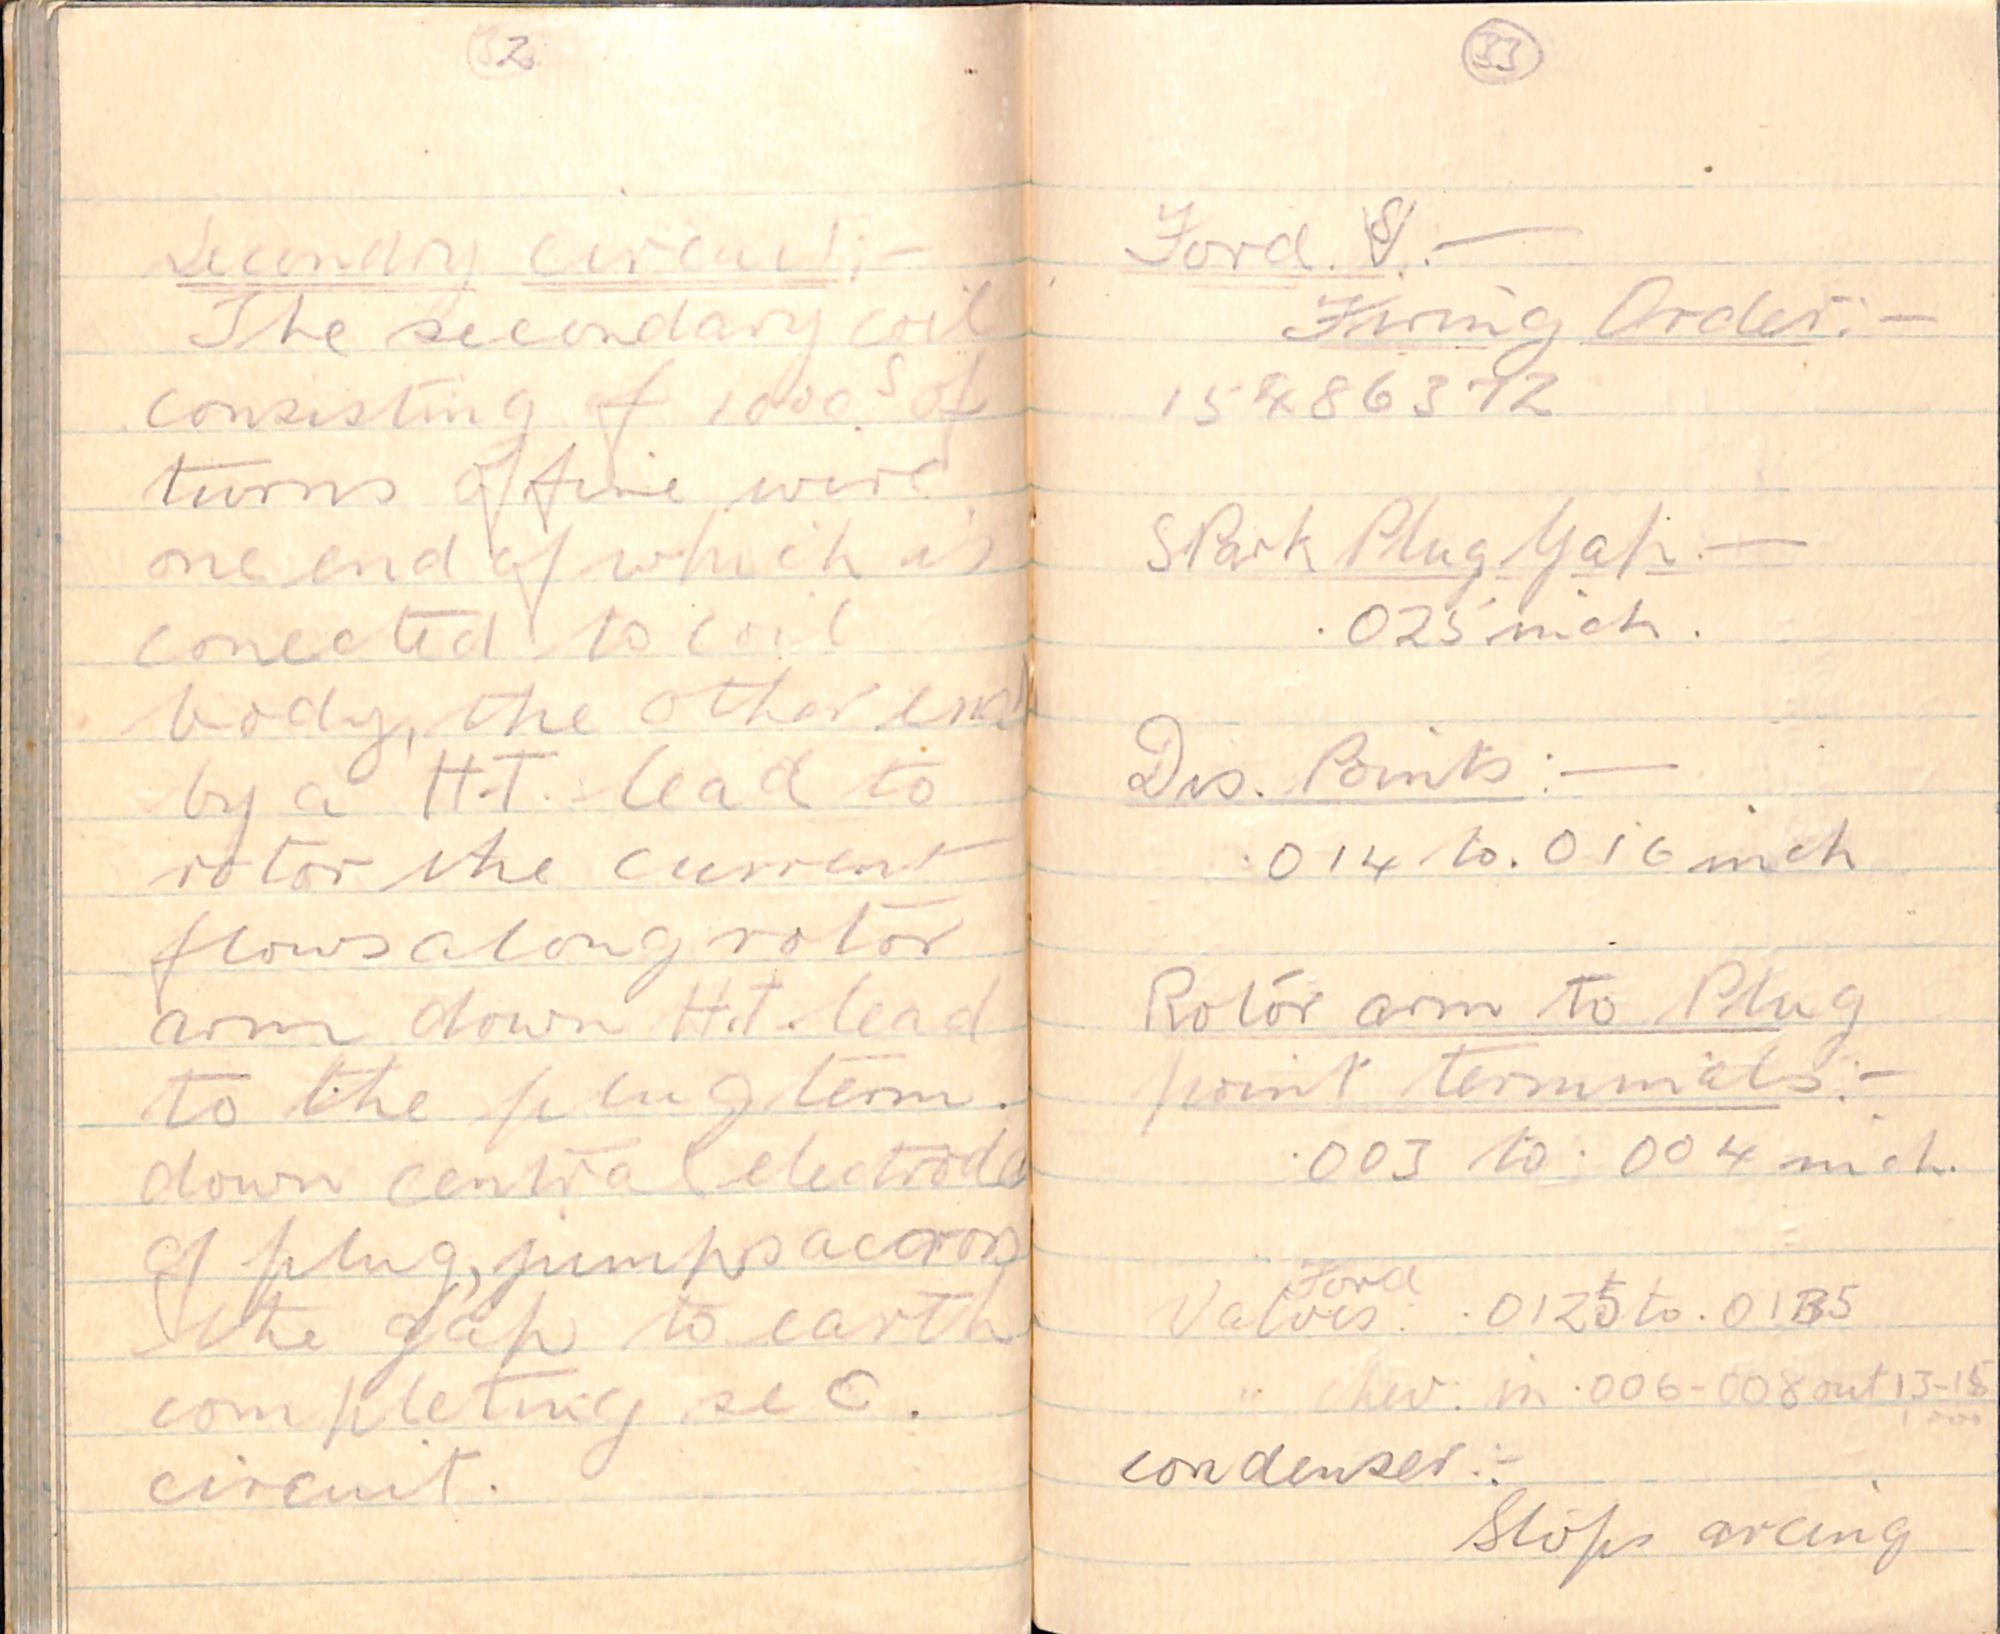 32
Secondry circuit:-
The secondary coil
consisting of 1000.S of
turns of fine wire
one end of which is
conected to coil
body, the other end
by a H.T. lead to
rotor the current
flows along rotor
arm down H.T. lead
to the plug term.
down central electrode
of plug, jumps accross
the gap to earth
completing sec.
circuit.
33
Ford. V8.:—
Firing Order:-
15486372
SPark Plug Gap.—
.025 inch.
Dis. Points:—
.014 to .016 inch
Rotor arm to Plug
point terminals:-
.003 to .004 inch.
Ford
Valves. .0125 to .0135
" Chev. in .006-008 out 13-15
1000
condenser:-
Stops arcing